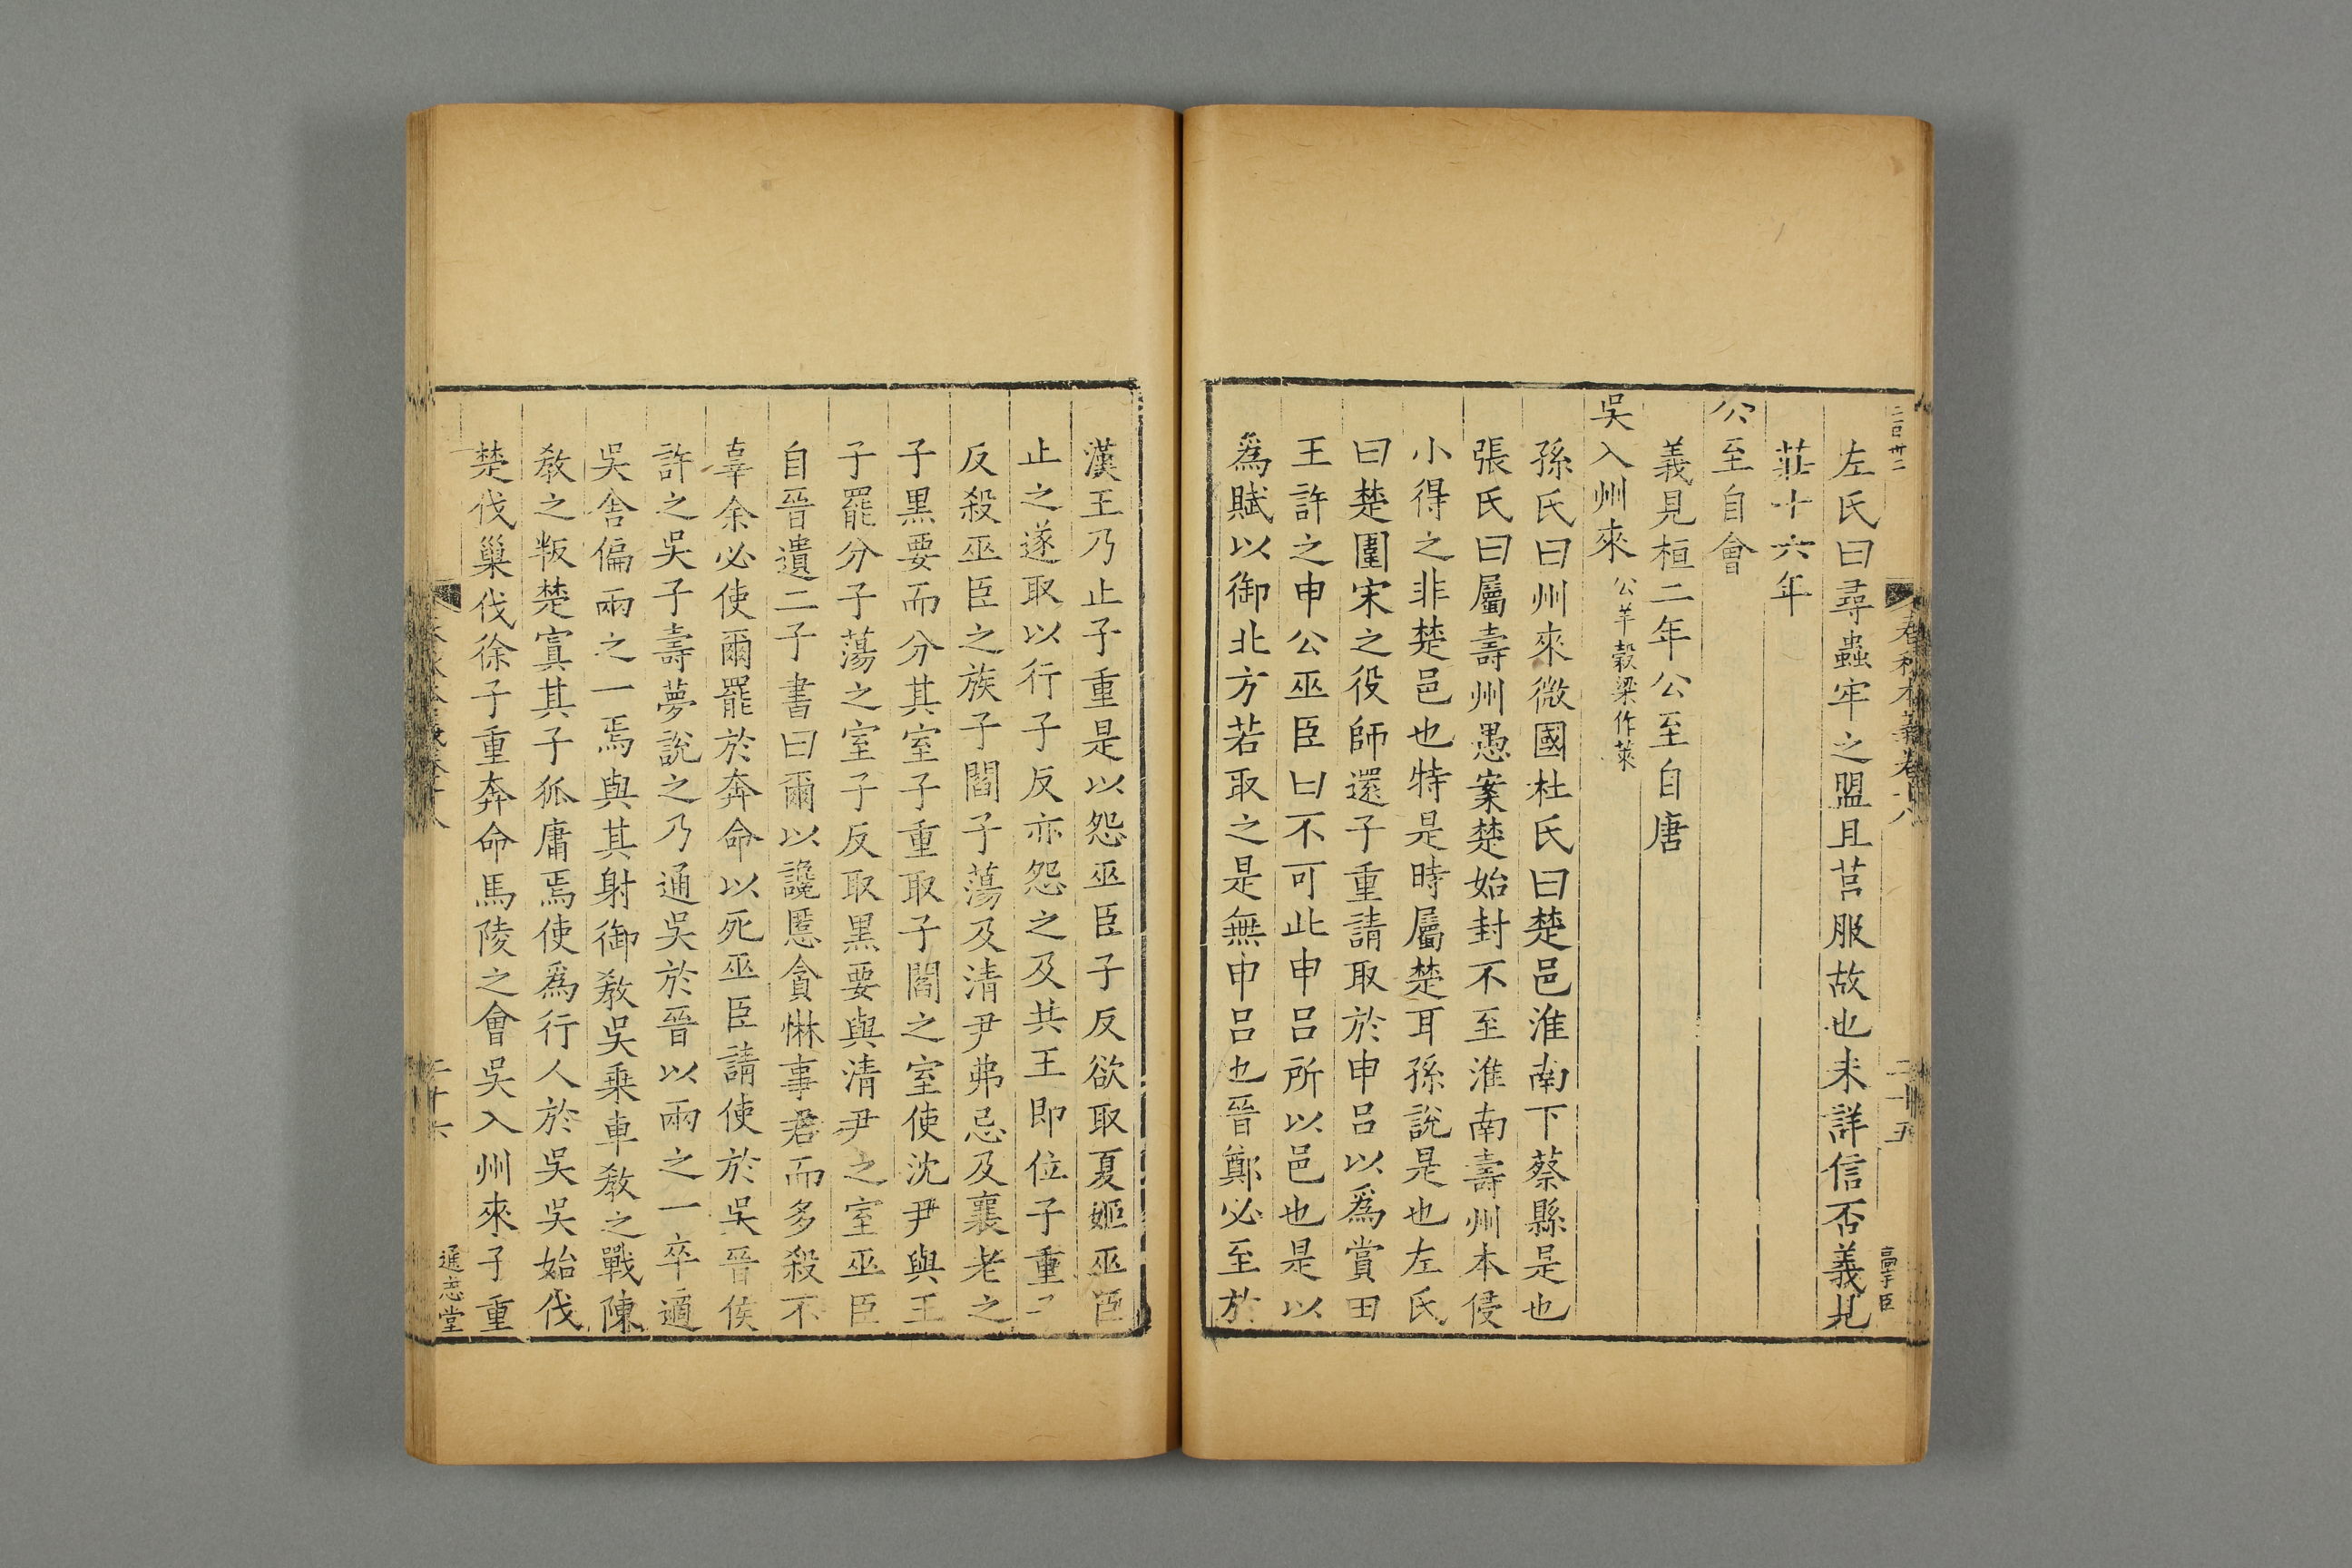 二百卅二
春秋本義卷十八
二十五
高宇臣
左氏曰尋蟲牢之盟且莒服故也未詳信否義見
莊十六年
公至自會
義見桓二年公至自唐
吳入州來公羊穀梁作萊
孫氏曰州來微國杜氏曰楚邑淮南下蔡縣是也
張氏曰屬壽州愚案楚始封不至淮南壽州本侵
小得之非楚邑也特是時屬楚耳孫說是也左氏
曰楚圍宋之役師還子重請取於申呂以爲賞田
王許之申公巫臣曰不可此申呂所以邑也是以
爲賦以御北方若取之是無申呂也晉鄭必至於
漢王乃止子重是以怨巫臣子反欲取夏姬巫臣
止之遂取以行子反亦怨之及共王即位子重子
反殺巫臣之族子閻子蕩及清尹弗忌及襄老之
子黑要而分其室子重取子閻之室使沈尹與王
子罷分子蕩之室子反取黑要與清尹之室巫臣
自晉遺二子書曰爾以讒慝貪惏事君而多殺不
辜余必使爾罷於奔命以死巫臣請使於吳晉侯
許之吳子壽夢說之乃通吳於晉以兩之一卒適
吳舍偏兩之一焉與其射御教吳乘車教之戰陳
教之叛楚寘其子狐庸焉使爲行人於吳吳始伐
楚伐巢伐徐子重奔命馬陵之會吳入州來子重
春秋本義卷十八
二十六
通志堂